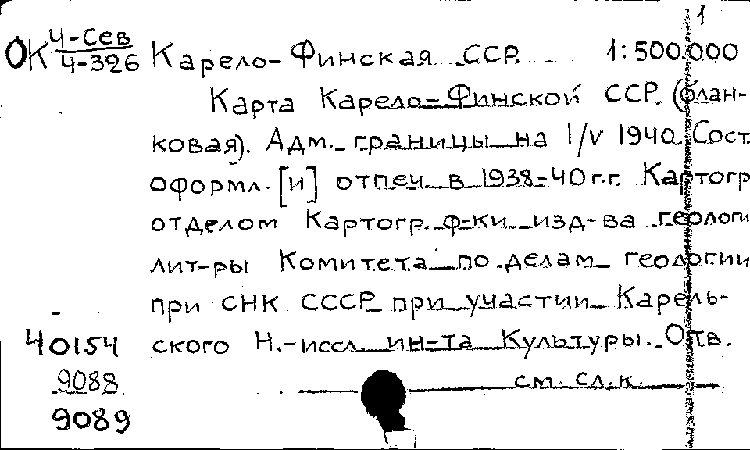 1
ОК Ч-Сев
Ч-326
Карело-Финская ССР. 1:500.000
Карта Карело-Финской ССР. (блан-
ковая). Адм. границы на 1/V 1940. Сост.
оформл. [и] отпеч. в 1938-40 г.г. Картогр
отделом Картогр. ф-ки изд-ва геологи
лит-ры Комитета по делам геологии
при СНК СССР при участии Карель-
40154 ского Н.-иссл. ин-та Культуры. Отв.
9088 см. сл. к.
9089